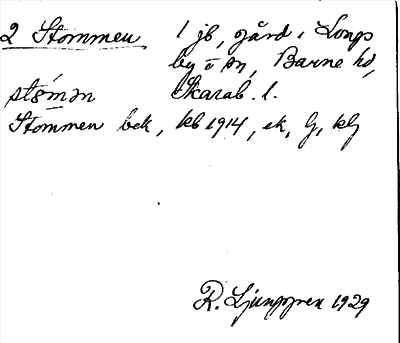 2 Stommen 1 jb, gård i Longs
by o sn, Barne hd,
stœ́mən Skarab. l.
Stommen bek, kb 1914, ek, G, klg
R. Ljunggren 1929